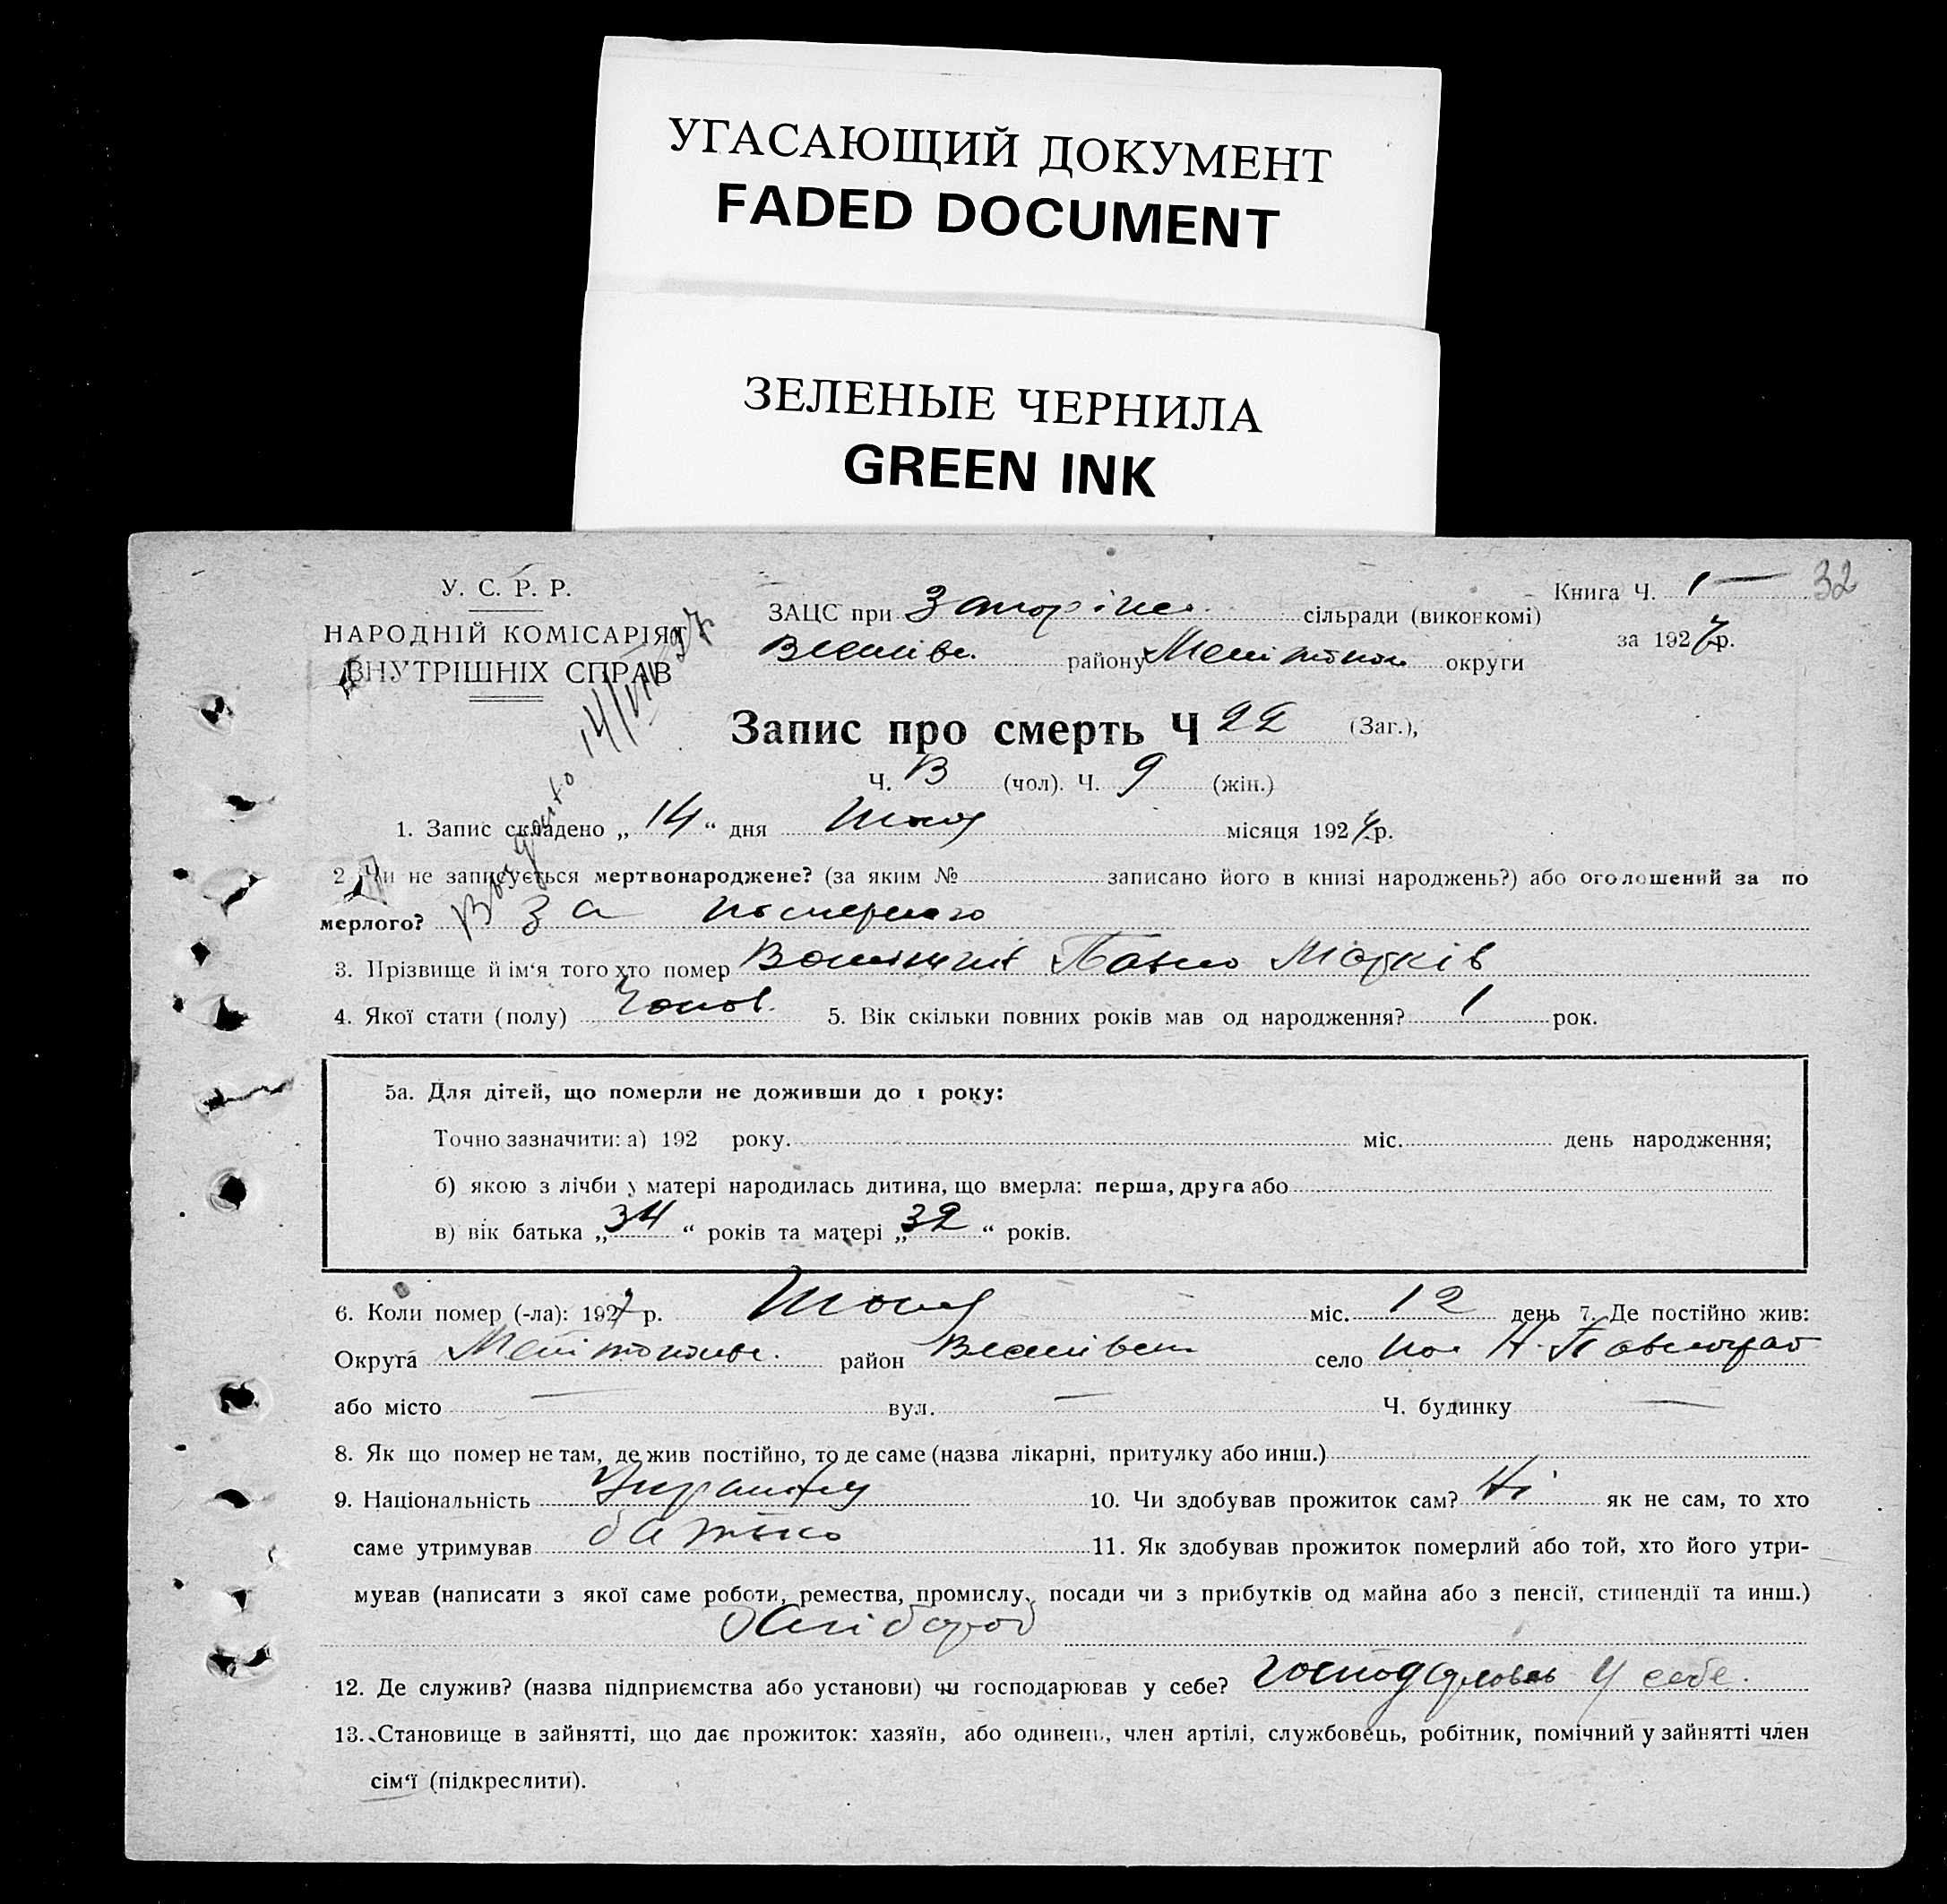 УГАСАЮЩИЙ ДОКУМЕНТ
FADED DOCUMENT
ЗЕЛЕНЫЕ ЧЕРНИЛА
GREEN INK
У. С. Р. Р.
НАРОДНІЙ КОМІСАРІЯТ
ВНУТРІШНІХ СПРАВ
Книга Ч. 1 — 32
за 1927 р.
ЗАЦС при сільради (виконкомі)
району округи
14/VII 27
Запис про смерть Ч 22 (Заг.),
Ч. В (чол). Ч. 9 (жін.)
1. Запис складено „ 14 “ дня місяця 1927 р.
2 Чи не записується мертвонароджене? (за яким № записано його в книзі народжень?) або оголошений за по
мерлого? За
3. Прізвище й ім‘я того хто помер Марків
4. Якої стати (полу) Чолов. 5. Вік скільки повних років мав од народження? 1 рок.
5а. Для дітей, що померли не доживши до 1 року:
Точно зазначити: а) 192 року. міс. день народження;
б) якою з лічби у матері народилась дитина, що вмерла: перша, друга або
в) вік батька „ 34 “ років та матері „ 32 “ років.
6. Коли помер (-ла): 1927 р. міс. 12 день 7. Де постійно жив:
Округа район село Н-Павлоград
або місто — вул. — Ч. будинку —
8. Як що помер не там, де жив постійно, то де саме (назва лікарні, притулку або инш.)
9. Національність 10. Чи здобував прожиток сам? Ні як не сам, то хто
саме утримував батько 11. Як здобував прожиток померлий або той, хто його утри-
мував (написати з якої саме роботи, ремества, промислу, посади чи з прибутків од майна або з пенсії, стипендії та инш.)
Хлібороб
12. Де служив? (назва підприємства або установи) чи господарював у себе? господарював у себе.
13. Становище в зайнятті, що дає прожиток: хазяїн, або одинець, член артілі, службовець, робітник, помічний у зайнятті член
сім‘ї (підкреслити).